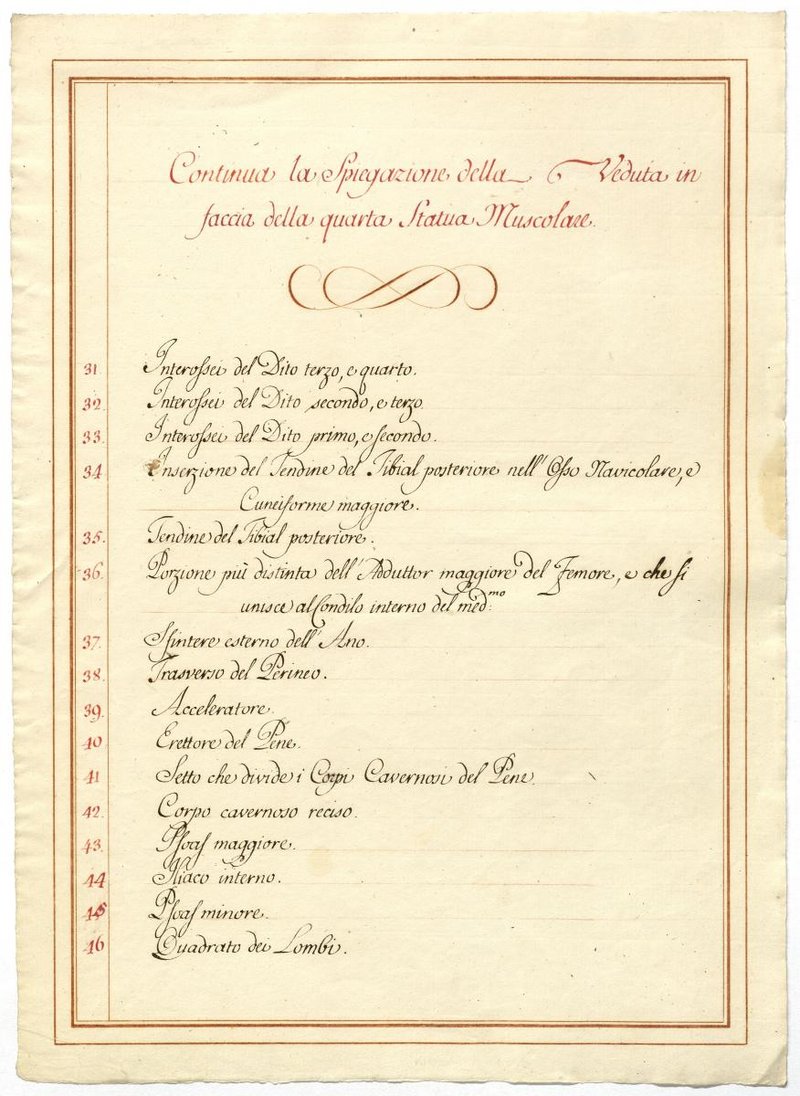 Continua la Spiegazione della Veduta in
faccia della quarta Statua Muscolare.
31. Interossei del Dito terzo, e quarto.
32. Interossei del Dito secondo, e terzo.
33. Interossei del Dito primo, e secondo.
34 Inserzione del Tendine del Tibial posteriore nell' Osso Navicolare, e
Cuneiforme maggiore.
35. Tendine del Tibial posteriore.
36. Porzione più distinta dell' Adduttor maggiore del Femore, e che si
unisce al Condilo interno del med:mo
37. Sfintere esterno dell' Ano.
38. Trasverso del Perineo.
39. Acceleratore.
40 Erettore del Pene.
41 Setto che divide i Corpi Cavernosi del Pene.
42. Corpo cavernoso reciso.
43. Psoas maggiore.
44 Iliaco interno.
45 Psoas minore.
46 Quadrato dei Lombi.